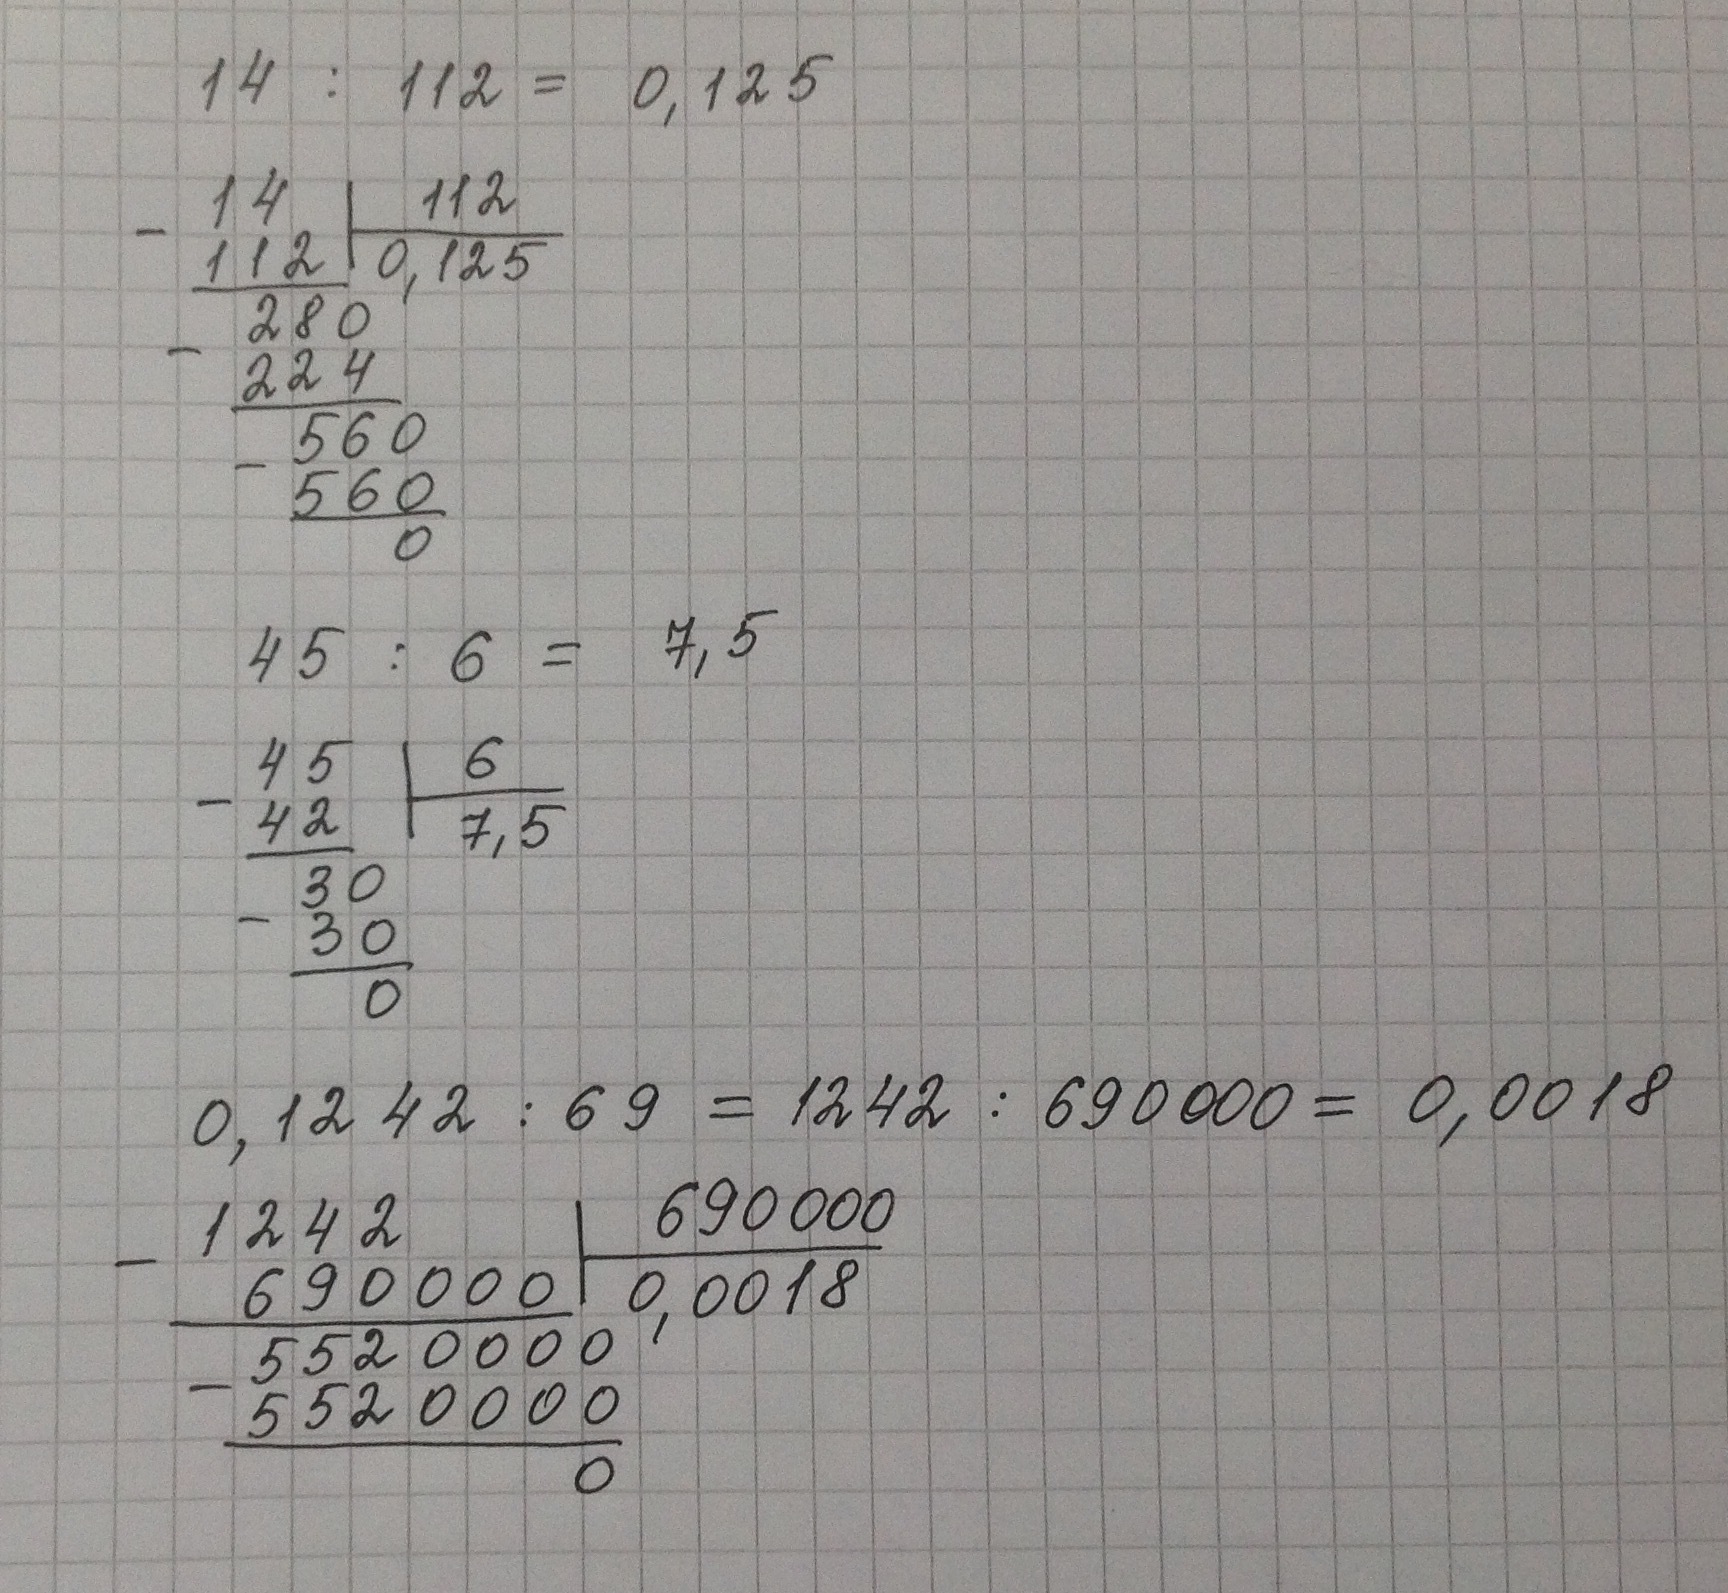 14 : 112 = 0,125
- 14 | 112
112 | 0,125
280
- 224
560
- 560
0
45 : 6 = 7,5
- 45 | 6
42 | 7,5
30
- 30
0
0,1242 : 69 = 1242 : 690000 = 0,0018
- 1242 | 690000
690000 | 0,0018
5520000
- 5520000
0